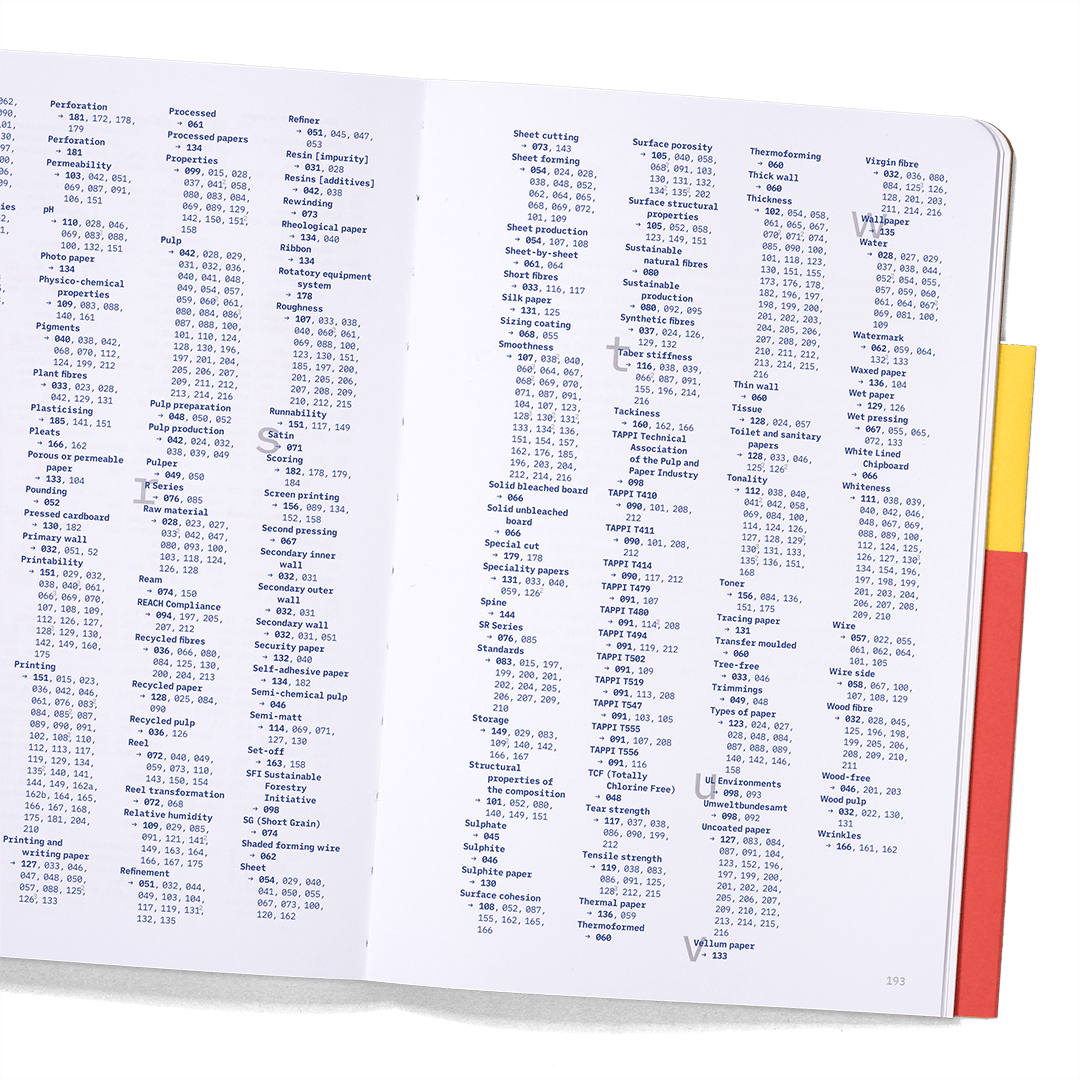 062,
090,
101,
130,
97,
00,
06,
09,
ies
02,
01,
Perforation
→ 181, 172, 178,
179
Perforation
→ 181
Permeability
→ 103, 042, 051,
069, 087, 091,
116, 151
pH
→ 110, 028, 046,
069, 083, 088,
100, 132, 151
Photo paper
→ 134
Physico-chemical
properties
→ 109, 083, 088,
140, 161
Pigments
→ 040, 038, 042,
068, 070, 112,
124, 199, 212
Plant fibres
→ 033, 023, 028,
042, 129, 131
Plasticising
→ 185, 141, 151
Pleats
→ 166, 162
Porous or permeable
paper
→ 133, 104
Pounding
→ 052
Pressed cardboard
→ 130, 182
Primary wall
→ 032, 051, 52
Printability
→ 151, 029, 032,
038, 040, 061,
066, 069, 070,
107, 108, 109,
112, 126, 127,
128, 129, 130,
142, 149, 160,
175
Printing
→ 151, 015, 023,
036, 042, 046,
061, 076, 083,
084, 085, 087,
089, 090, 091,
102, 108, 110,
112, 113, 117,
119, 129, 134,
135, 140, 141,
144, 149, 162a,
162b, 164, 165,
166, 167, 168,
175, 181, 204,
210
Printing and
writing paper
→ 127, 033, 046,
047, 048, 050,
057, 088, 125,
126, 133
Processed
→ 061
Processed papers
→ 134
Properties
→ 099, 015, 028,
037, 041, 058,
080, 083, 084,
069, 089, 129,
142, 150, 151,
158
Pulp
→ 042, 028, 029,
031, 032, 036,
040, 041, 048,
049, 054, 057,
059, 060, 061,
080, 084, 086,
087, 088, 100,
101, 110, 124,
128, 130, 196,
197, 201, 204,
205, 206, 207,
209, 211, 212,
213, 214, 216
Pulp preparation
→ 048, 050, 052
Pulp production
→ 042, 024, 032,
038, 039, 049
Pulper
→ 049, 050
r
R Series
→ 076, 085
Raw material
→ 028, 023, 027,
033, 042, 047,
080, 093, 100,
103, 118, 124,
126, 128
Ream
→ 074, 150
REACH Compliance
→ 094, 197, 205,
207, 212
Recycled fibres
→ 036, 066, 080,
084, 125, 130,
200, 204, 213
Recycled paper
→ 128, 025, 084,
090
Recycled pulp
→ 036, 126
Reel
→ 072, 040, 049,
059, 073, 110,
143, 150, 154
Reel transformation
→ 072, 068
Relative humidity
→ 109, 029, 085,
091, 121, 141,
149, 163, 164,
166, 167, 175
Refinement
→ 051, 032, 044,
049, 103, 104,
117, 119, 131,
132, 135
Refiner
→ 051, 045, 047,
053
Resin [impurity]
→ 031, 028
Resins [additives]
→ 042, 038
Rewinding
→ 073
Rheological paper
→ 134, 040
Ribbon
→ 134
Rotatory equipment
system
→ 178
Roughness
→ 107, 033, 038,
040, 060, 061,
069, 088, 100,
123, 130, 151,
185, 197, 200,
201, 205, 206,
207, 208, 209,
210, 212, 215
Runnability
→ 151, 117, 149
s
Satin
→ 071
Scoring
→ 182, 178, 179,
184
Screen printing
→ 156, 089, 134,
152, 158
Second pressing
→ 067
Secondary inner
wall
→ 032, 031
Secondary outer
wall
→ 032, 031
Secondary wall
→ 032, 031, 051
Security paper
→ 132, 040
Self-adhesive paper
→ 134, 182
Semi-chemical pulp
→ 046
Semi-matt
→ 114, 069, 071,
127, 130
Set-off
→ 163, 158
SFI Sustainable
Forestry
Initiative
→ 098
SG (Short Grain)
→ 074
Shaded forming wire
→ 062
Sheet
→ 054, 029, 040,
041, 050, 055,
067, 073, 100,
120, 162
Sheet cutting
→ 073, 143
Sheet forming
→ 054, 024, 028,
038, 048, 052,
062, 064, 065,
068, 069, 072,
101, 109
Sheet production
→ 054, 107, 108
Sheet-by-sheet
→ 061, 064
Short fibres
→ 033, 116, 117
Silk paper
→ 131, 125
Sizing coating
→ 068, 055
Smoothness
→ 107, 038, 040,
060, 064, 067,
068, 069, 070,
071, 087, 091,
104, 107, 123,
128, 130, 131,
133, 134, 136,
151, 154, 157,
162, 176, 185,
196, 203, 204,
212, 214, 216
Solid bleached board
→ 066
Solid unbleached
board
→ 066
Special cut
→ 179, 178
Speciality papers
→ 131, 033, 040,
059, 126
Spine
→ 144
SR Series
→ 076, 085
Standards
→ 083, 015, 197,
199, 200, 201,
202, 204, 205,
206, 207, 209,
210
Storage
→ 149, 029, 083,
109, 140, 142,
166, 167
Structural
properties of
the composition
→ 101, 052, 080,
140, 149, 151
Sulphate
→ 045
Sulphite
→ 046
Sulphite paper
→ 130
Surface cohesion
→ 108, 052, 087,
155, 162, 165,
166
Surface porosity
→ 105, 040, 058,
068, 091, 103,
130, 131, 132,
134, 135, 202
Surface structural
properties
→ 105, 052, 058,
123, 149, 151
Sustainable
natural fibres
→ 080
Sustainable
production
→ 080, 092, 095
Synthetic fibres
→ 037, 024, 126,
129, 132
t
Taber stiffness
→ 116, 038, 039,
066, 087, 091,
155, 196, 214,
216
Tackiness
→ 160, 162, 166
TAPPI Technical
Association
of the Pulp and
Paper Industry
→ 098
TAPPI T410
→ 090, 101, 208,
212
TAPPI T411
→ 090, 101, 208,
212
TAPPI T414
→ 090, 117, 212
TAPPI T479
→ 091, 107
TAPPI T480
→ 091, 114, 208
TAPPI T494
→ 091, 119, 212
TAPPI T502
→ 091, 109
TAPPI T519
→ 091, 113, 208
TAPPI T547
→ 091, 103, 105
TAPPI T555
→ 091, 107, 208
TAPPI T556
→ 091, 116
TCF (Totally
Chlorine Free)
→ 048
Tear strength
→ 117, 037, 038,
086, 090, 199,
212
Tensile strength
→ 119, 038, 083,
086, 091, 125,
128, 212, 215
Thermal paper
→ 136, 059
Thermoformed
→ 060
Thermoforming
→ 060
Thick wall
→ 060
Thickness
→ 102, 054, 058,
061, 065, 067,
070, 071, 074,
085, 090, 100,
101, 118, 123,
130, 151, 155,
173, 176, 178,
182, 196, 197,
198, 199, 200,
201, 202, 203,
204, 205, 206,
207, 208, 209,
210, 211, 212,
213, 214, 215,
216
Thin wall
→ 060
Tissue
→ 128, 024, 057
Toilet and sanitary
papers
→ 128, 033, 046,
125, 126
Tonality
→ 112, 038, 040,
041, 042, 058,
069, 084, 100,
114, 124, 126,
127, 128, 129,
130, 131, 133,
135, 136, 151,
168
Toner
→ 156, 084, 136,
151, 175
Tracing paper
→ 131
Transfer moulded
→ 060
Tree-free
→ 033, 046
Trimmings
→ 049, 048
Types of paper
→ 123, 024, 027,
028, 048, 084,
087, 088, 089,
140, 142, 146,
158
u
UL Environments
→ 098, 093
Umweltbundesamt
→ 098, 092
Uncoated paper
→ 127, 083, 084,
087, 091, 104,
123, 152, 196,
197, 199, 200,
201, 202, 204,
205, 206, 207,
209, 210, 212,
213, 214, 215,
216
v
Vellum paper
→ 133
Virgin fibre
→ 032, 036, 080,
084, 125, 126,
128, 201, 203,
211, 214, 216
w
Wallpaper
→ 135
Water
→ 028, 027, 029,
037, 038, 044,
052, 054, 055,
057, 059, 060,
061, 064, 067,
069, 081, 100,
109
Watermark
→ 062, 059, 064,
132, 133
Waxed paper
→ 136, 104
Wet paper
→ 129, 126
Wet pressing
→ 067, 055, 065,
072, 133
White Lined
Chipboard
→ 066
Whiteness
→ 111, 038, 039,
040, 042, 046,
048, 067, 069,
088, 089, 100,
112, 124, 125,
126, 127, 130,
134, 154, 196,
197, 198, 199,
201, 203, 204,
206, 207, 208,
209, 210
Wire
→ 057, 022, 055,
061, 062, 064,
101, 105
Wire side
→ 058, 067, 100,
107, 108, 129
Wood fibre
→ 032, 028, 045,
125, 196, 198,
199, 205, 206,
208, 209, 210,
211
Wood-free
→ 046, 201, 203
Wood pulp
→ 032, 022, 130,
131
Wrinkles
→ 166, 161, 162
193